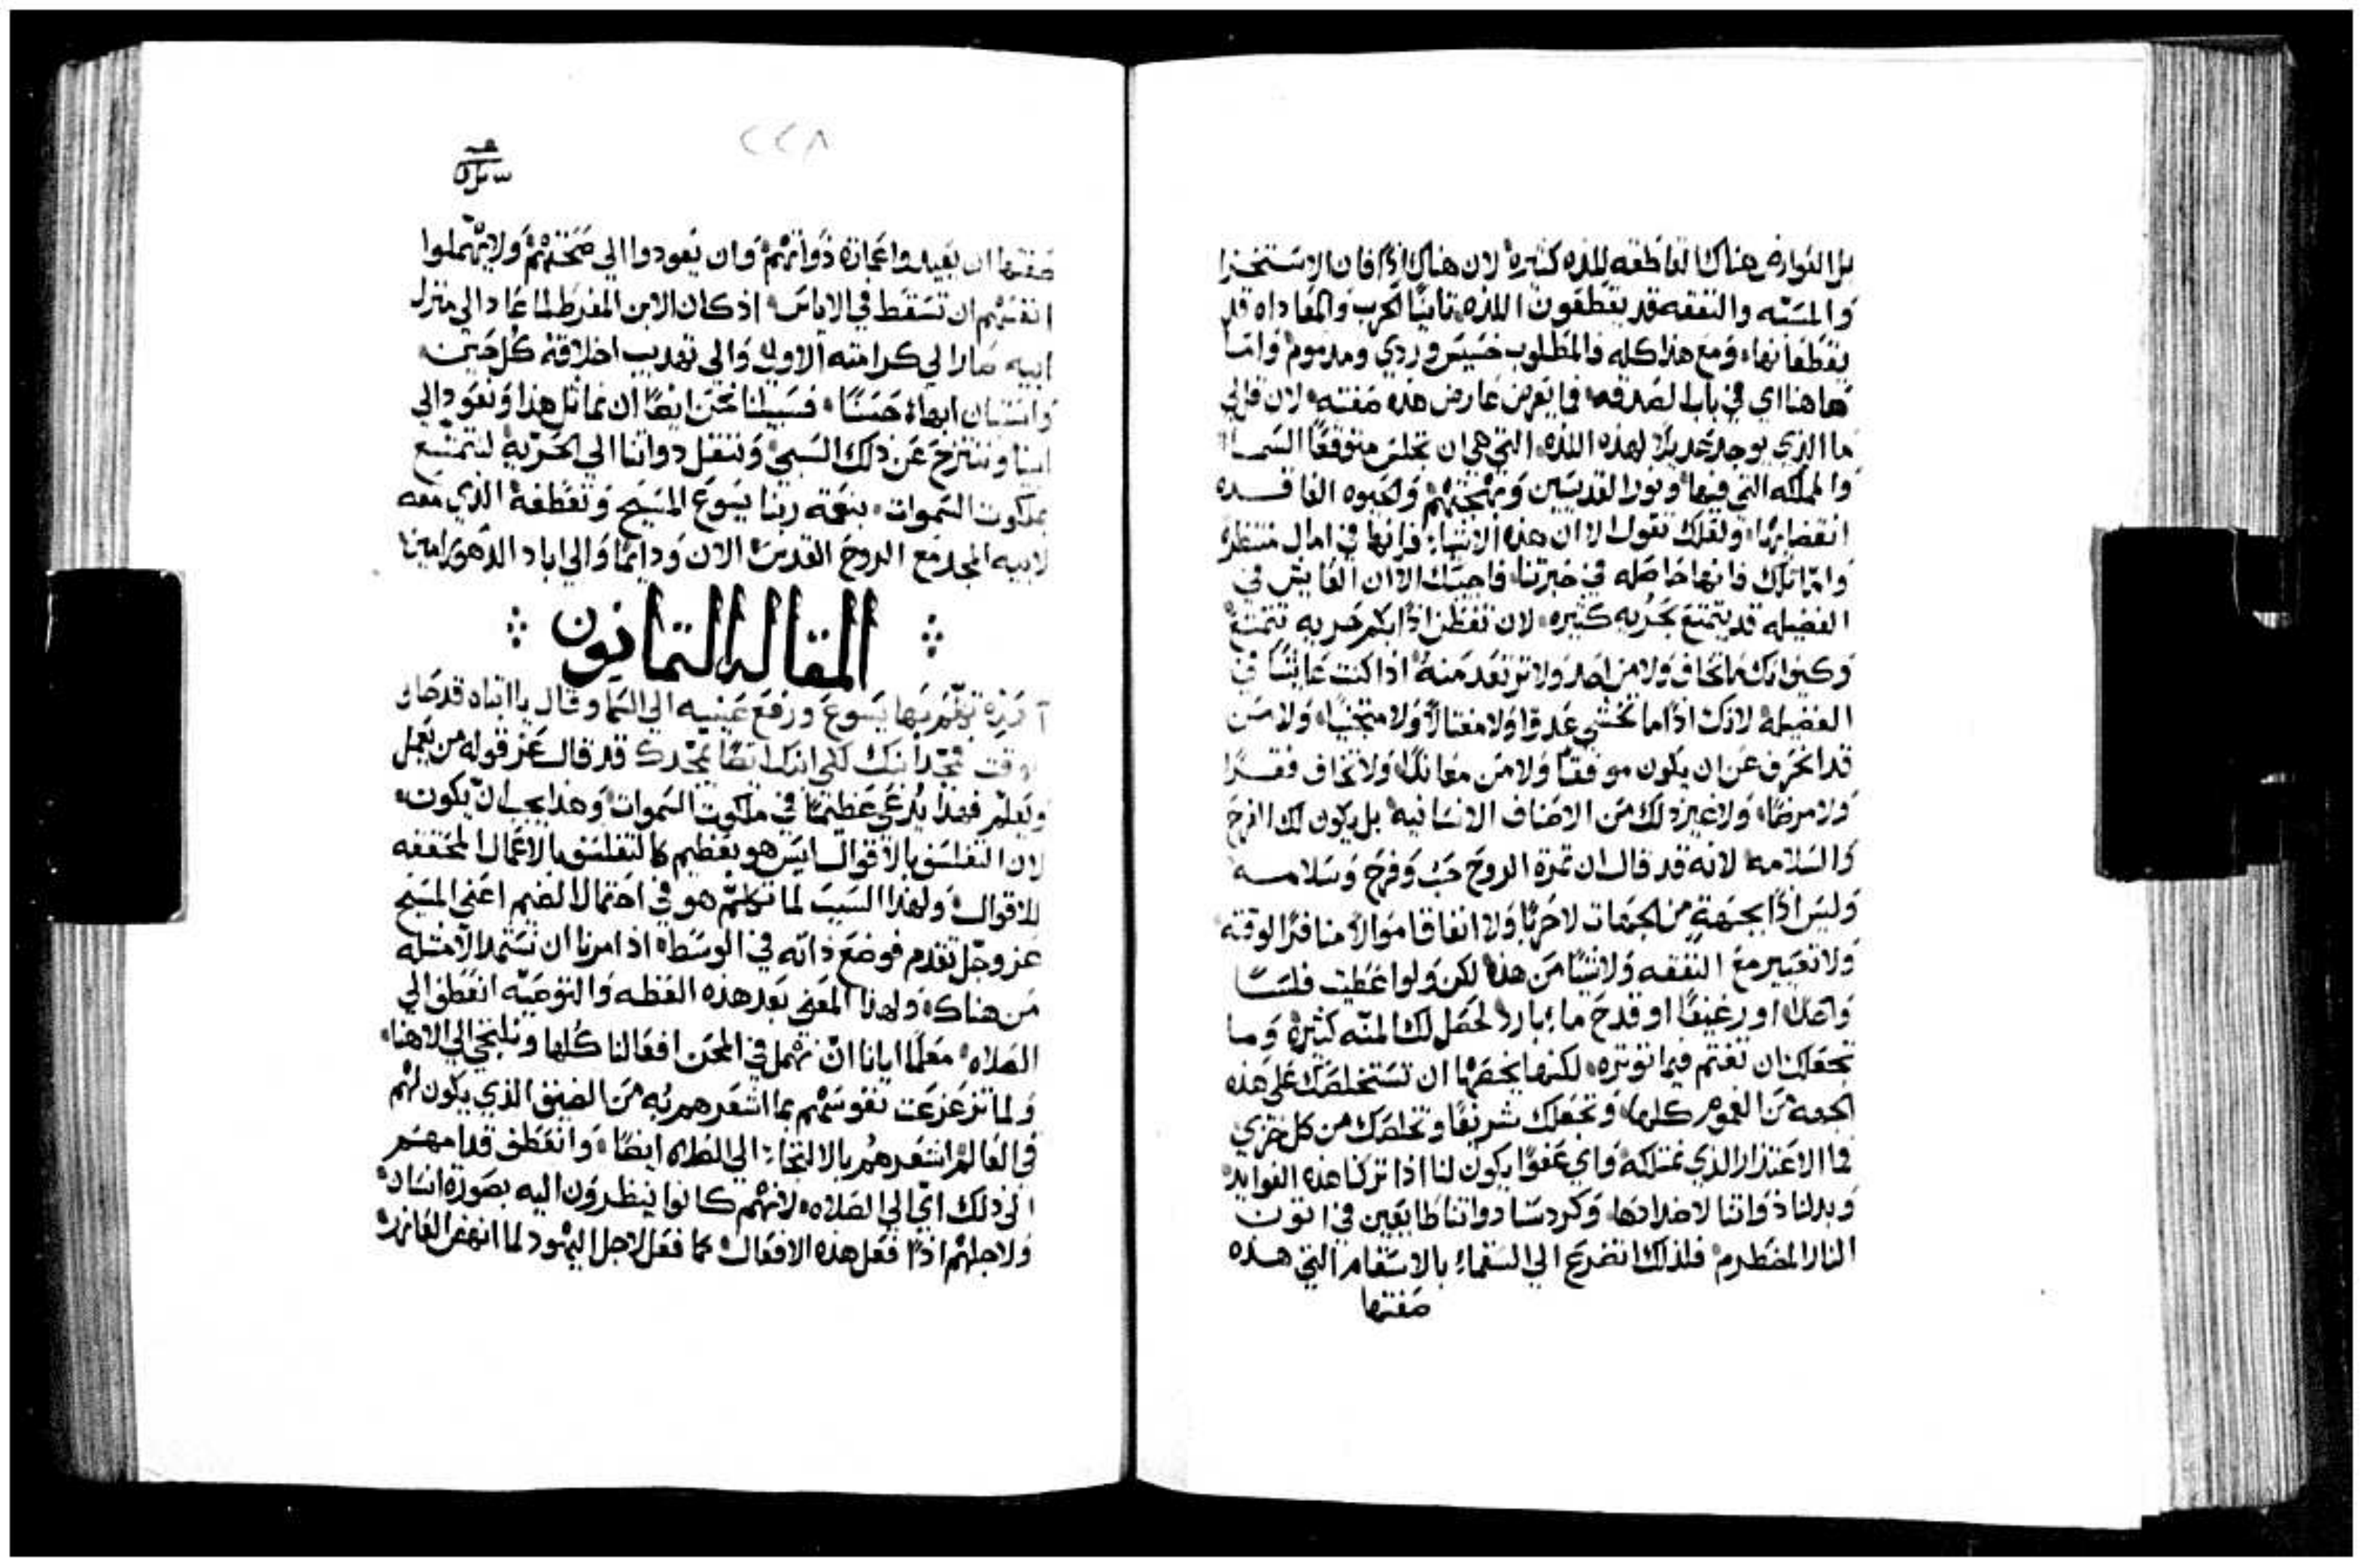 بل العوارض هناك القاطعه للذه كثيره لان هناك اذا فان الاستخزا
والمسبه والنفقه قد يقطعون اللذه ثانيًا الحرب والمعاداه قد
يقطعانها ومع هذا كله فالمطلوب خسيس وردي ومذموم واما
هاهنا اي في باب الصدقه فما يعرض عارض هذه صفته لان قل لي
ما الذي يوجد عديلا لهذه اللذه التي هي ان تجلس متوقعًا السما
والمملكه التي فيها ونور القديسين وبهجتهم والحيوه الفاقده
انقضايها ولعلك تقول لا ان هذه الاشياء فانها في امال منتظره
واما تلك فانها حاصله في خبرتنا فاجيبك الا ان العايش في
الفضيله قد يتمتع بحريه كثيره لان تفطن اذا بكم حريه تتمتع
وكيف انك ما تخاف ولا من احد ولا ترتعد منه اذا كنت عايشًا في
الفضيله لانك اذا ما تخشي عدوًا ولا مغتالا ولا متجنيًا ولا من
قد انحرف عن ان يكون موفقًا ولا من معاندًا ولا تخاف فقرًا
ولا مرضًا ولا غير ذلك من الاصناف الانسانيه بل يكون لك الفرح
والسلامه لانه قد قال ان ثمرة الروح حب وفرح وسلامه
وليس اذا بجهةٍ من الجهات لا حربًا ولا اتفاقا موالا منافرًا لوقته
ولا تعيير مع النفقه ولا شيًا من هذا لكن ولو اعطيت فلسًا
واحدًا او رغيفًا او قدح ماء بارد لحصل لك المنه كثيره وما
تجعلك ان تغتم فيما توثره لكنها يخصها ان تستخلصك علي هذه
الجهه من الغموم كلها وتجعلك شريفًا وتخلصك من كل خزي
فما الاعتذار الذي نمتلكه واي عفوًا يكون لنا اذا تركنا هذه الفوايد
وبدلنا ذواتنا لاضدادها وكردسنا ذواتنا طايعين في اتون
النار المضطرم فلذلك اتضرع الي السقماء بالاسقام التي هذه
صفتها
٢٢٨
صفتها ان يعيدوا عجازة ذواتهم وان يعودوا الي صحتهم ولا يهملوا
انفسهم ان تسقط في الاياس اذ كان الابن المفرط لما عاد الي منزل
ابيه صار الي كرامته الاولي والي تهذيب اخلاقه كل حين
واستبان ابهاء حسنًا فسبيلنا نحن ايضًا ان نماثل هذا ونعود الي
ابينا وننتزح عن ذلك السبي وننقل ذواتنا الي الحريه لنتمتع
بملكوت السموات بنعمة ربنا يسوع المسيح وتعطفه الذي معه
لابيه المجد مع الروح القدس الان ودايمًا والي اباد الدهور امين
المقاله الثمانون
قد تكلم بها يسوع ورفع عينيه الي السما وقال يا ابتاه قد حان
الوقت مجد ابنك لكي ابنك ايضًا يمجدك قد قال عز قوله من يعمل
ويعلم فهذا يدعي عظيمًا في ملكوت السموات وهذا يجب ان يكون
لان التفلسف بالاقوال ليس هو بعظيم كالتفلسف بالاعمال المحققه
للاقوال ولهذا السبب لما تكلم هو في احتمال الضيم اعني المسيح
عز وجل تقدم فوضع ذاته في الوسط اذ امرنا ان نستمد الامثله
من هناك ولهذا المعني بعد هذه العظه والتوصيه انعطف الي
الصلاه معلمًا ايانا ان نهمل في المحن افعالنا كلها ونلتجي الي الاهنا
ولما تزعزعت نفوسهم بما اشعرهم به من الضيق الذي يكون لهم
في العالم اشعرهم بالالتجاء الي الصلاه ايضًا وانعطف قدامهم
الي ذلك اي الي الصلاه لانهم كانوا ينظرون اليه بصورة انسان
ولاجلهم اذا فعل هذه الافعال كما فعل لاجل اليهود لما انهض العازر